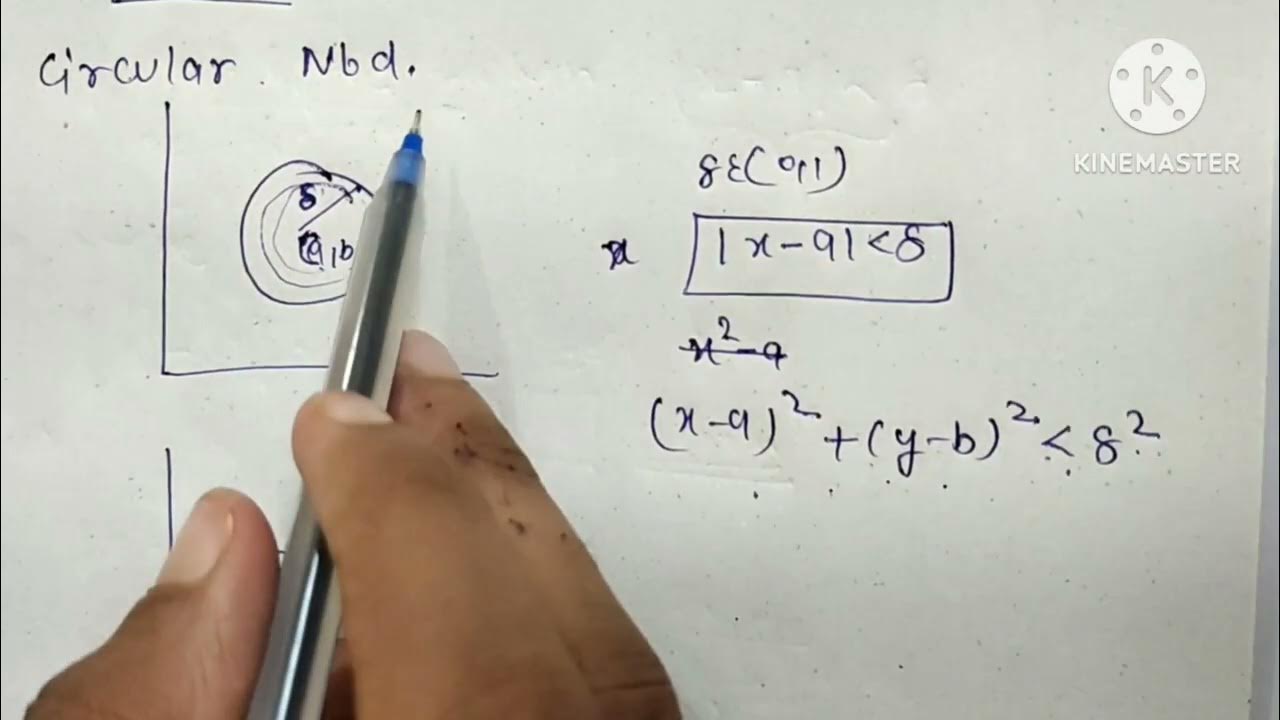 Circular Nbd.
K
KINEMASTER
δε(0,1)
δ
x |x-a|<δ
(a,b
x²-a
(x-a)²+(y-b)²<δ²